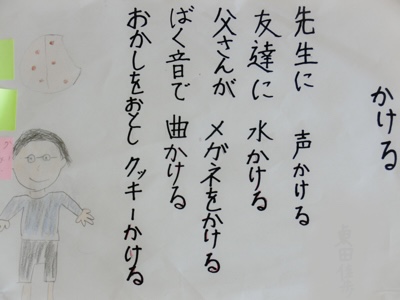 かける
先生に 声かける
友達に 水かける
父さんが メガネをかける
ばく音で 曲かける
おかしをおとし クッキーかける